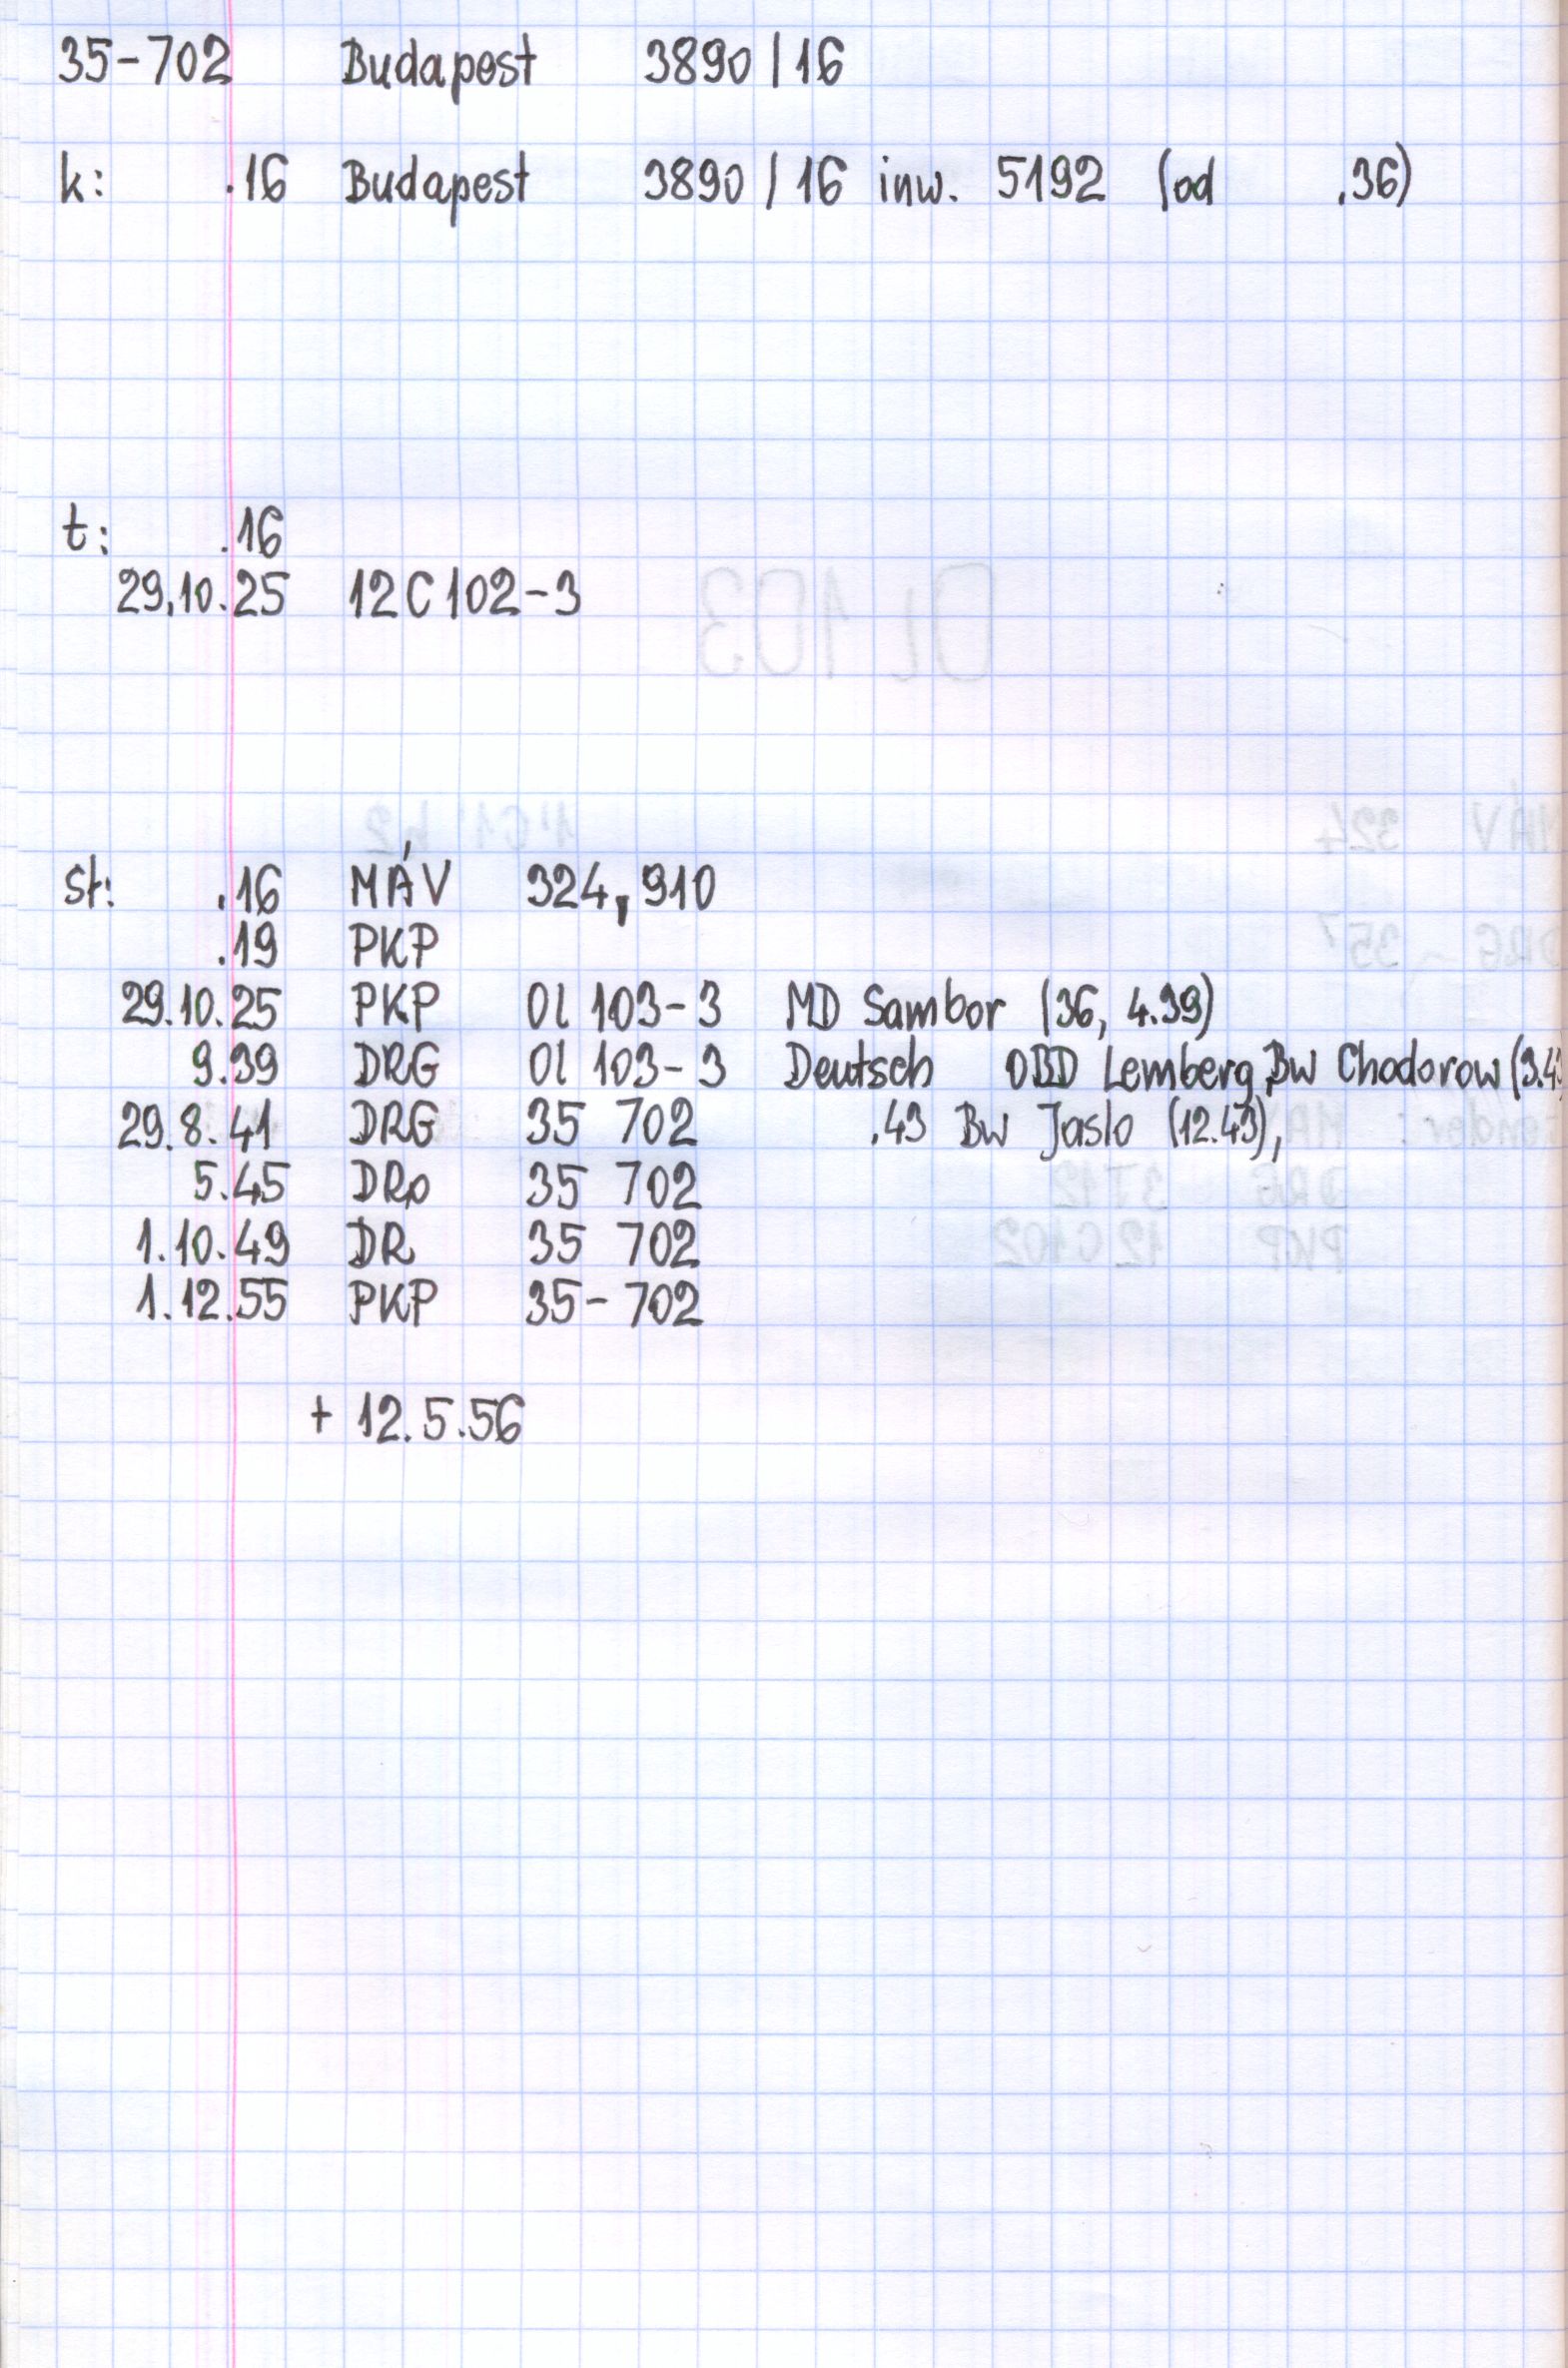 35-702 Budapest 3890/16
k: .16 Budapest 3890/16 inw. 5192 (od .36)
t: .16
29.10.25 12C102-3
st: .16 MÁV 324,910
.19 PKP
29.10.25 PKP Ol 103-3 MD Sambor (36, 4.39)
9.39 DRG Ol 103-3 Deutsch OBD Lemberg, Bw Chodorow
29.8.41 DRG 35 702 .43 Bw Jaslo (12.43),
5.45 DRo 35 702
1.10.49 DR 35 702
1.12.55 PKP 35-702
+ 12.5.56